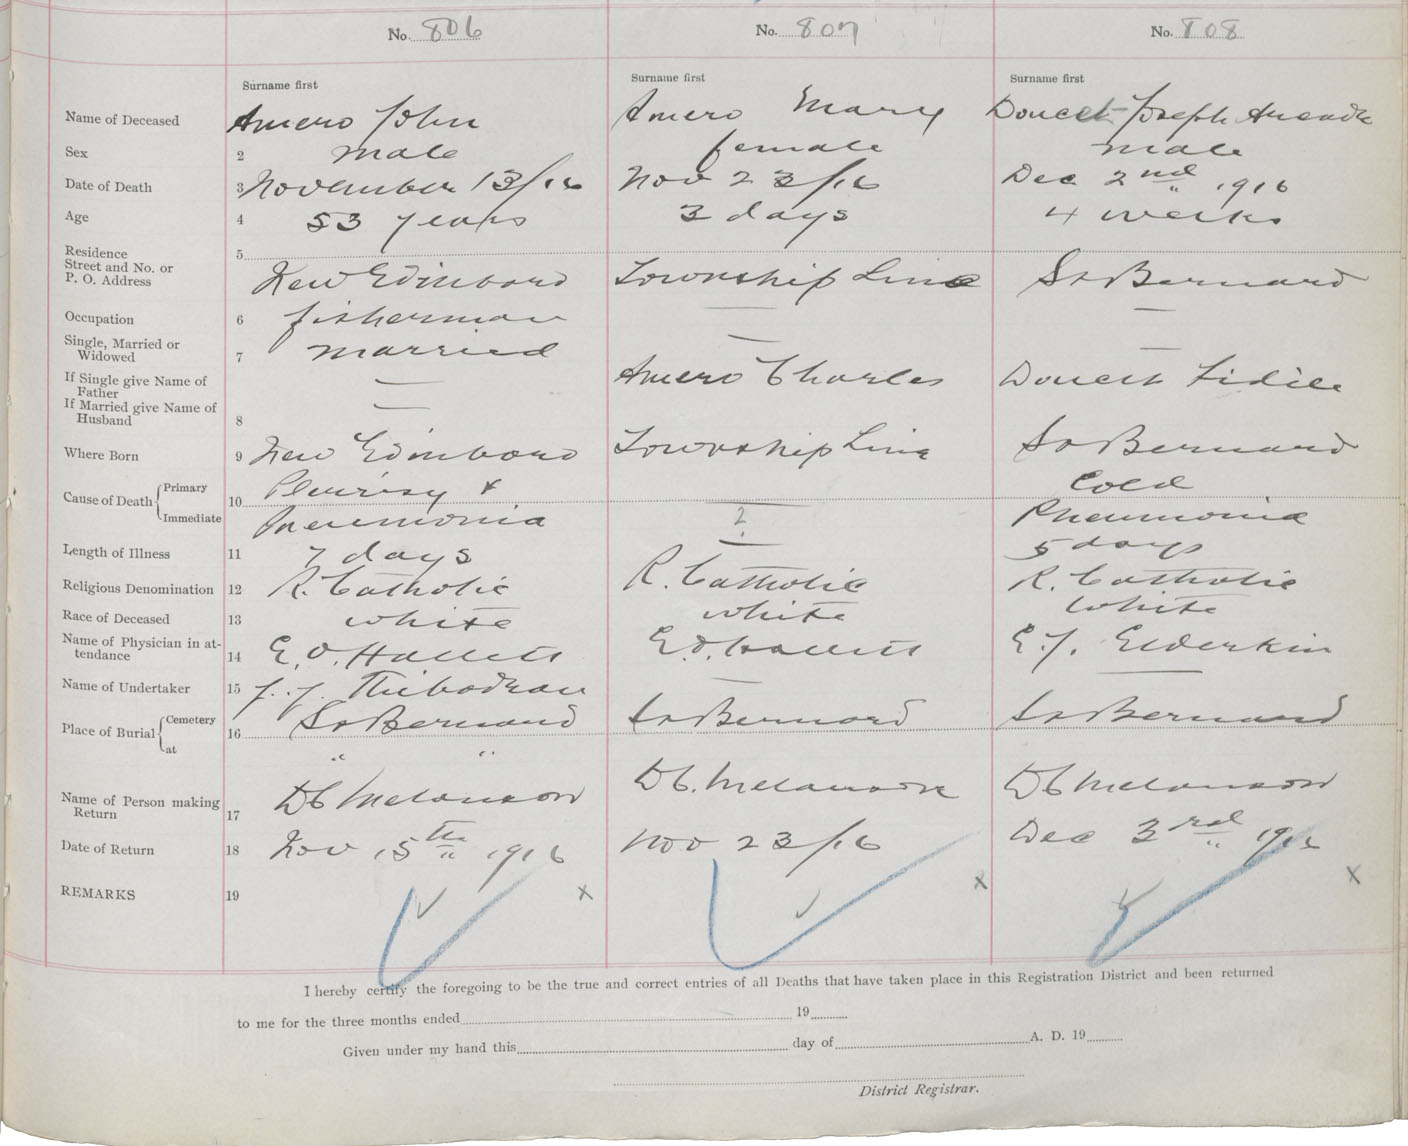 No. 806 No. 807 No. 808
Surname first Surname first Surname first
Name of Deceased Amero John Amero Mary Doucet Joseph
Sex 2 male female male
Date of Death 3 November 13/16 Nov 23/16 Dec 2nd 1916
Age 4 53 years 3 days 4 weeks
Residence 5
Street and No. or
P. O. Address New Edinboro Township Line St Bernard
Occupation 6 fisherman — —
Single, Married or
Widowed 7 married — —
If Single give Name of
Father — Amero Charles Doucet
If Married give Name of
Husband 8 —
Where Born 9 New Edinboro Township Line St Bernard
Cause of Death Primary 10 Pleurisy & Cold
Immediate Pneumonia ? Pneumonia
Length of Illness 11 7 days — 5 days
Religious Denomination 12 R. Catholic R. Catholic R. Catholic
Race of Deceased 13 white white white
Name of Physician in at-
tendance 14 E. O. Hallett E. O. Hallett E. J. Elderkin
Name of Undertaker 15 J. J. Thibodeau — —
Place of Burial Cemetery 16 St Bernard St Bernard St Bernard
at " "
Name of Person making
Return 17 D C Melanson D C. Melanson D C Melanson
Date of Return 18 Nov 15th 1916 Nov 23/16 Dec 3rd 1916
REMARKS 19 ✓ x ✓ x ✓ x
I hereby certify the foregoing to be the true and correct entries of all Deaths that have taken place in this Registration District and been returned
to me for the three months ended 19
Given under my hand this day of A. D. 19
District Registrar.